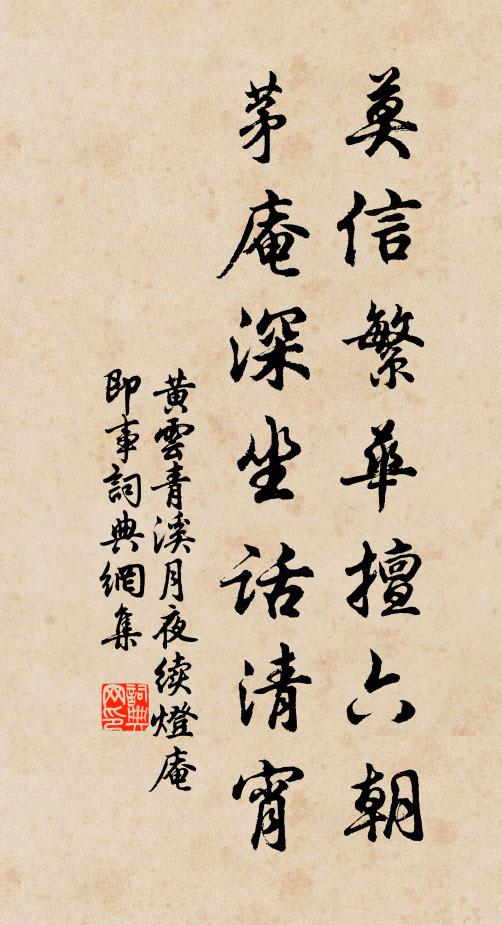 莫信繁華擅六朝
茅庵深坐话清宵
黄雲青溪月夜续燈庵
即事詞典網集
詞典
网印